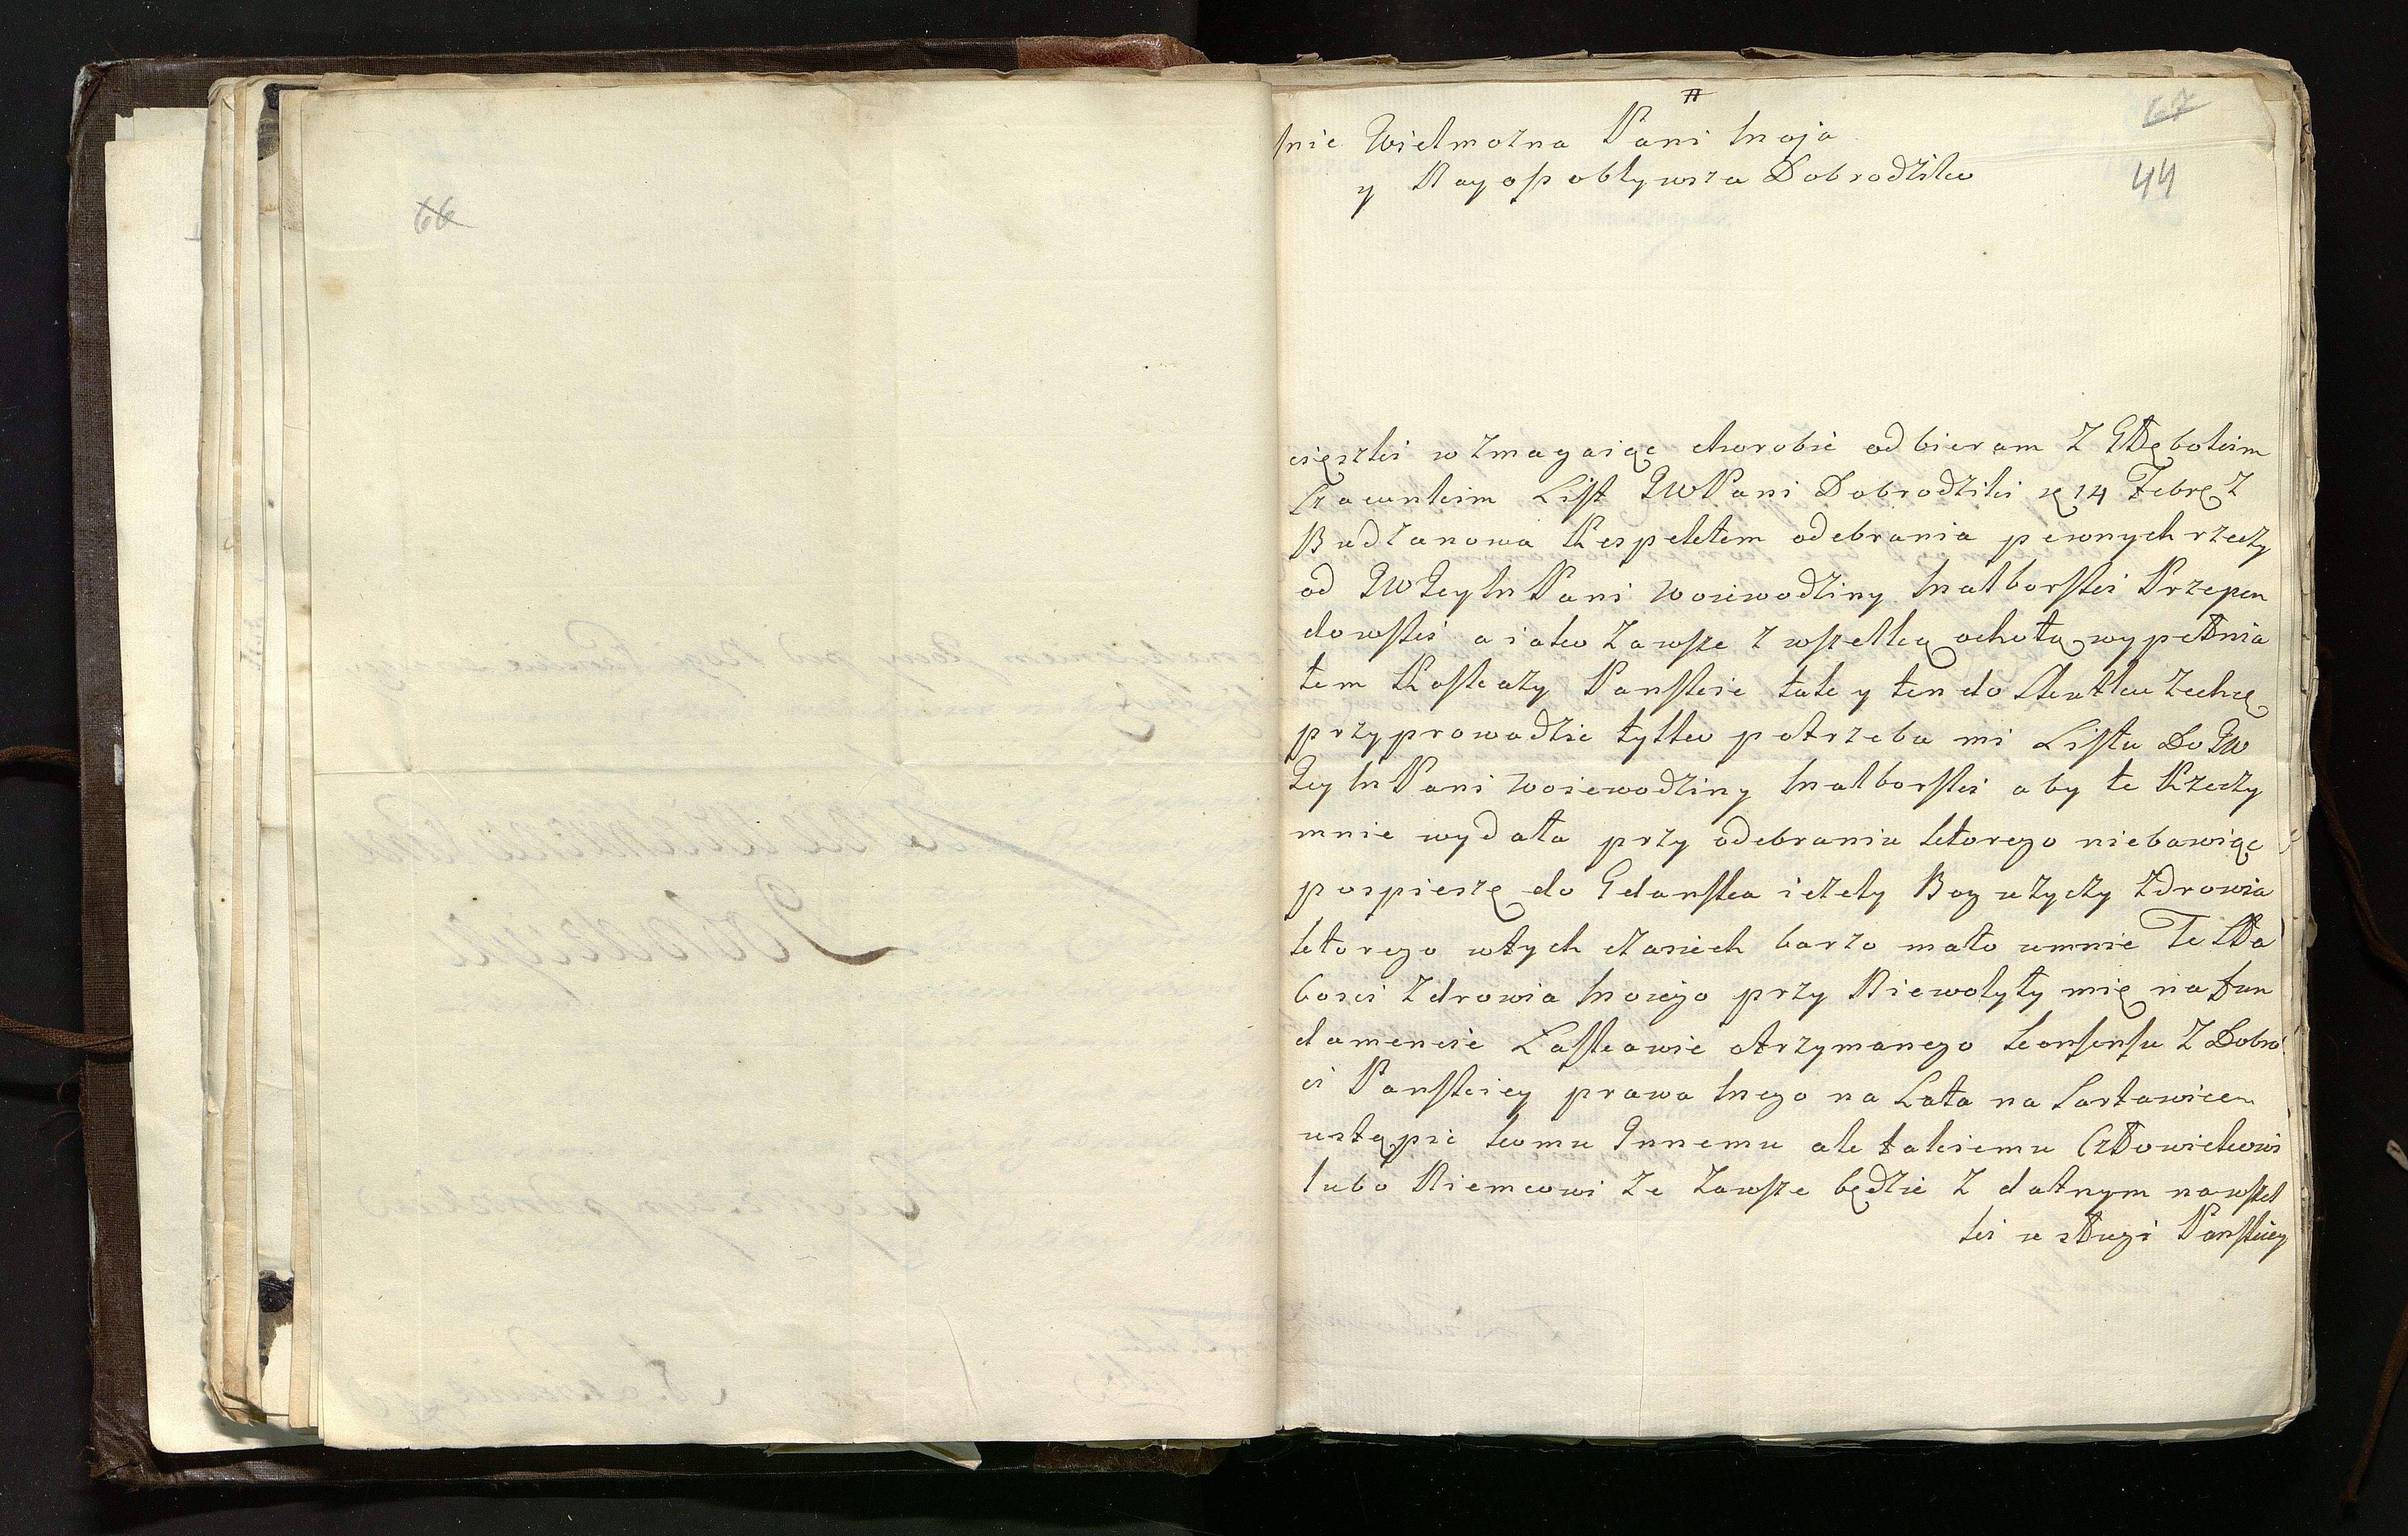 66
67
44
śnie Wielmozna Pani Moja
y Nayosobliwsza Dobrodziko
cięszki w zmagaiąc chorobie odbieram z Głębokim
szacunkim List JWPani Dobrodziki 14 Febr z
Budzanowa Respektem odebrania pewnych rzeczy
od JWJeyM Pani Woiewodziny Malborski Przepen
dowski a iako zawsze z wszelką ochotą wypełnia
łem Roskazy Panskie tak y ten do skutku zechcę
przyprowadzic tylko potrzeba mi Listu Do JW
JeyM Pani Woiewodziny Malborski aby te Rzeczy
mnie wydała przy odebraniu ktorego niebawiąc
pospieszę do Gdanska iezely Bog uzyczy zdrowia
ktorego wtych czasiech barzo mało umnie Te Sła
bosci zdrowia Mojego przy Niewolyly mię na fun
damencie Laskawie otrzymanego konsensu z Dobro
ci Panskiey prawa Mego na Lata na Sartawice
ustąpic komu Innemu ale takiemu Człowiekowi
lubo Niemcowi ze zawsze będzie z datnym nawszel
ki usługi Panskiey